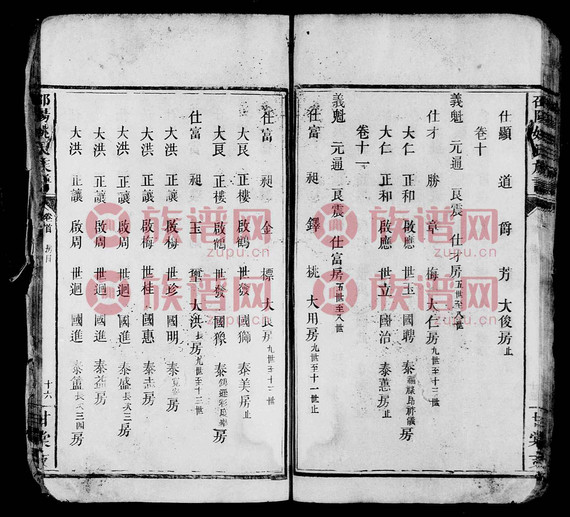 仕顯 道 爵 芳 大俊房止
卷十
義魁 元通 良震 仕才房五世至八世
仕才 勝 章 海 大仁房九世至十一世
大仁 正和 啟應 世玉 國聘
大仁 正和 啟應 世立 國治 泰蕙房止
卷十一
義魁 元通 良震 仕富房五世至八世
仕富 昶 鐸 桃 大用房九世至十一世止
仕富 昶 金 標 大良房九世至十三世
大良 正樓 啟鶴 世發 國獅 泰美房止
大良 正樓 啟鶴 世發 國
仕富 昶 玉 大洪房九世至十三世
大洪 正讓 啟楊 世珍 國明 泰
大洪 正讓 啟梅 世桂 國惠 泰志房
大洪 正讓 啟周 世迴 國進 泰盛長次三房
大洪 正讓 啟周 世迴 國進 泰
大洪 正讓 啟周 世迴 國進 泰
卷首
十六
甘棠
族谱网
zupu.cn
族谱网
zupu.cn
族谱网
zupu.cn
族谱网
zupu.cn